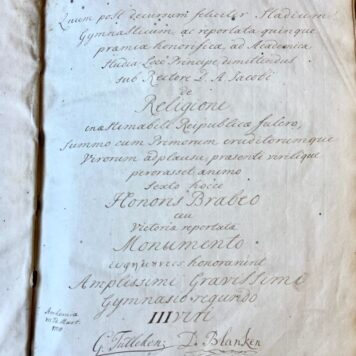 Quum post decursum feliciter Stadium
Gymnasticum, ac reportata quinque
præmia honorifica, ad Academica
Studia Loco Principe dimittendus
sub Rectore D. A. Jacobi
de
Religione
inæstimabili Reipublicæ fulcro,
summo cum Primorum eruditorumque
Virorum adplausu, præsente virilique
perorasset animo
Sexto hocce
Honoris Brabeo
ceu
Victoria reportata
Monumento
honorarunt
Amplissimi Gravissimi
Gymnasio regundo
III Viri
G. Tulleken Dr Blanken